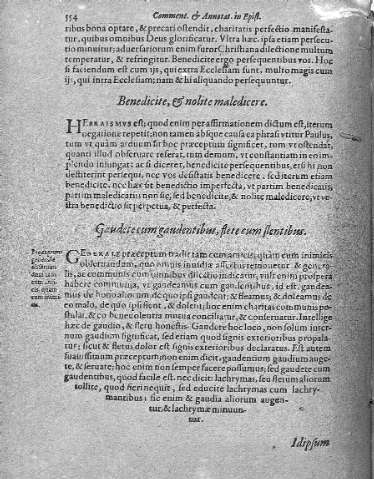 554 Comment. & Annotat. in Epist.
ribus bona optare, & precari ostendit, charitatis perfectio manifesta-
tur, quibus omnibus Deus glorificatur. Vltra hæc, ipsa etiam persecu-
tio minuitur; aduersariorum enim furor Christiana dilectione multum
temperatur, & refringitur. Benedicite ergo persequentibus vos. Hoc
si faciendum est cum ijs, qui extra Ecclesiam sunt, multo magis cum
ijs, qui intra Ecclesiam; nam & hi aliquando persequuntur.
Benedicite, & nolite maledicere.
HEBRAISMVS est; quod enim per affirmationem dictum est, iterum
negatione repetit; non tamen absque causa ea phrasi vtitur Paulus,
tum vt quàm arduum sit hoc præceptum significet, tum vt ostendat,
quanti illud obseruare referat, tum demum, vt constantiam in eo
iniungat: ac si diceret, benedicite persequentibus, etsi hi non
destiterint persequi, nec vos desistatis benedicere. sed iterum etiam
benedicite. nec hæc sit benedictio imperfecta, vt partim benedicatis,
partim maledicatis non sic, sed benedicite, & nolite maledicere, vt ve-
stra benedictio sit perpetua, & perfecta.
Gaudete cum gaudentibus, flete cum flentibus.
GENERALE præceptum traditiam cum amicis, quàm cum inimicis
obseruandum, quo omnis inuidia affectus remouetur & genera-
lis, ac communis cum omnibus dilectio indicatur, vult enim prospera
habere communia, vt gaudeamus cum gaudentibus, id est, gaudea-
mus de bono aliorum de quo ipsi gaudent; & fleamus, & doleamus de
eo malo, de quo ipsi flent, & dolent; hoc enim charitas communis po-
stulat, & eo beneuolentia mutua conciliatur, & conseruatur. Intellige
hæc de gaudio, & fletu honestis. Gaudere hoc loco, non solum inter-
num gaudium significat, sed etiam quod signis exterioribus propala-
tur; sicut & fletus dolor est signis exterioribus declaratus. Est autem
suauissimum præceptum; non enim dicit, gaudentium gaudium auge-
te, & seruate; hoc enim non semper facere possumus; sed gaudete cum
gaudentibus, quod facile est. nec dicit: lachrymas, seu fletum aliorum
tollite, quod fieri nequit, sed educite lachrymas cum lachry-
mantibus; sic enim & gaudia aliorum augen-
tur, & lachrymæ minuun-
tur.
Idipsum